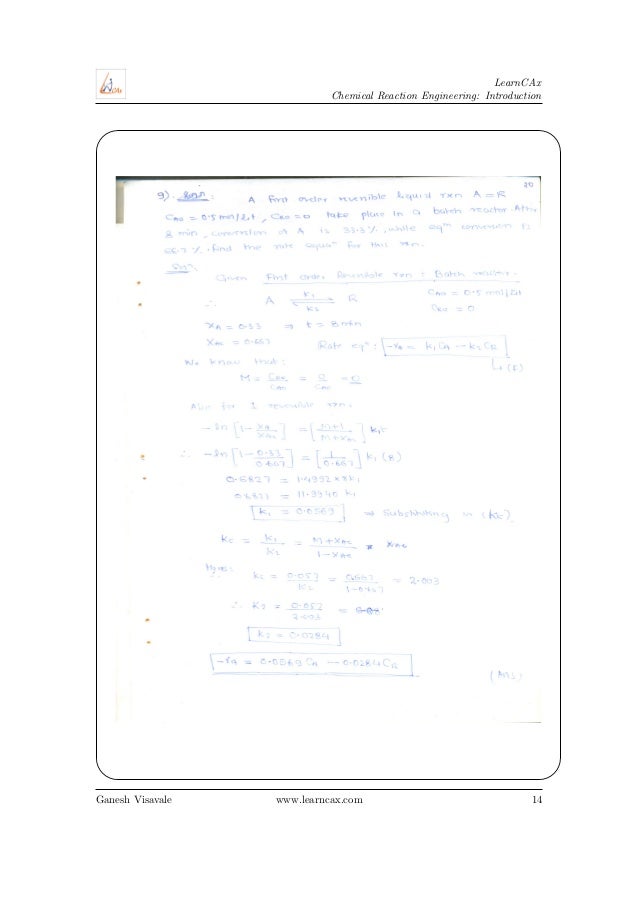 LearnCAx
Chemical Reaction Engineering: Introduction
20
9). A first order reversible liquid rxn A = R
CA0 = 0.5 mol/lit, CR0 = 0 take place in a batch reactor. After
8 min, conversion of A is 33.3 %, while eqm conversion is
66.7 %. find the rate equan for this rxn.
Soln:
Given First order Reversible rxn : Batch reactor.
∴ A K1 ⇌ K2 R CA0 = 0.5 mol/lit
CR0 = 0
XA = 0.33 ⇒ t = 8 min
XAe = 0.667 Rate eqn: -rA = K1CA - K2CR
↳ (E)
We know that:
M = CR0/CA0 = 0/CA0 = 0
Also for 1 reversible rxn.
-ln [1 - XA/XAe] = [M+1/M+XAe] K1t
∴ -ln [1 - 0.33/0.667] = [1/0.667] K1 (8)
0.6827 = 1.4992 x 8K1
0.6827 = 11.9940 K1
K1 = 0.0569 ⇒ Substituting in (Kc)
Kc = K1/K2 = M+XAe/1-XAe
∴ Kc = 0.057/K2 = 0.667/1-0.667 = 2.003
∴ K2 = 0.057/2.003
K2 = 0.0284
-rA = 0.0569 CA - 0.0284 CR
(Ans)
Ganesh Visavale www.learncax.com 14